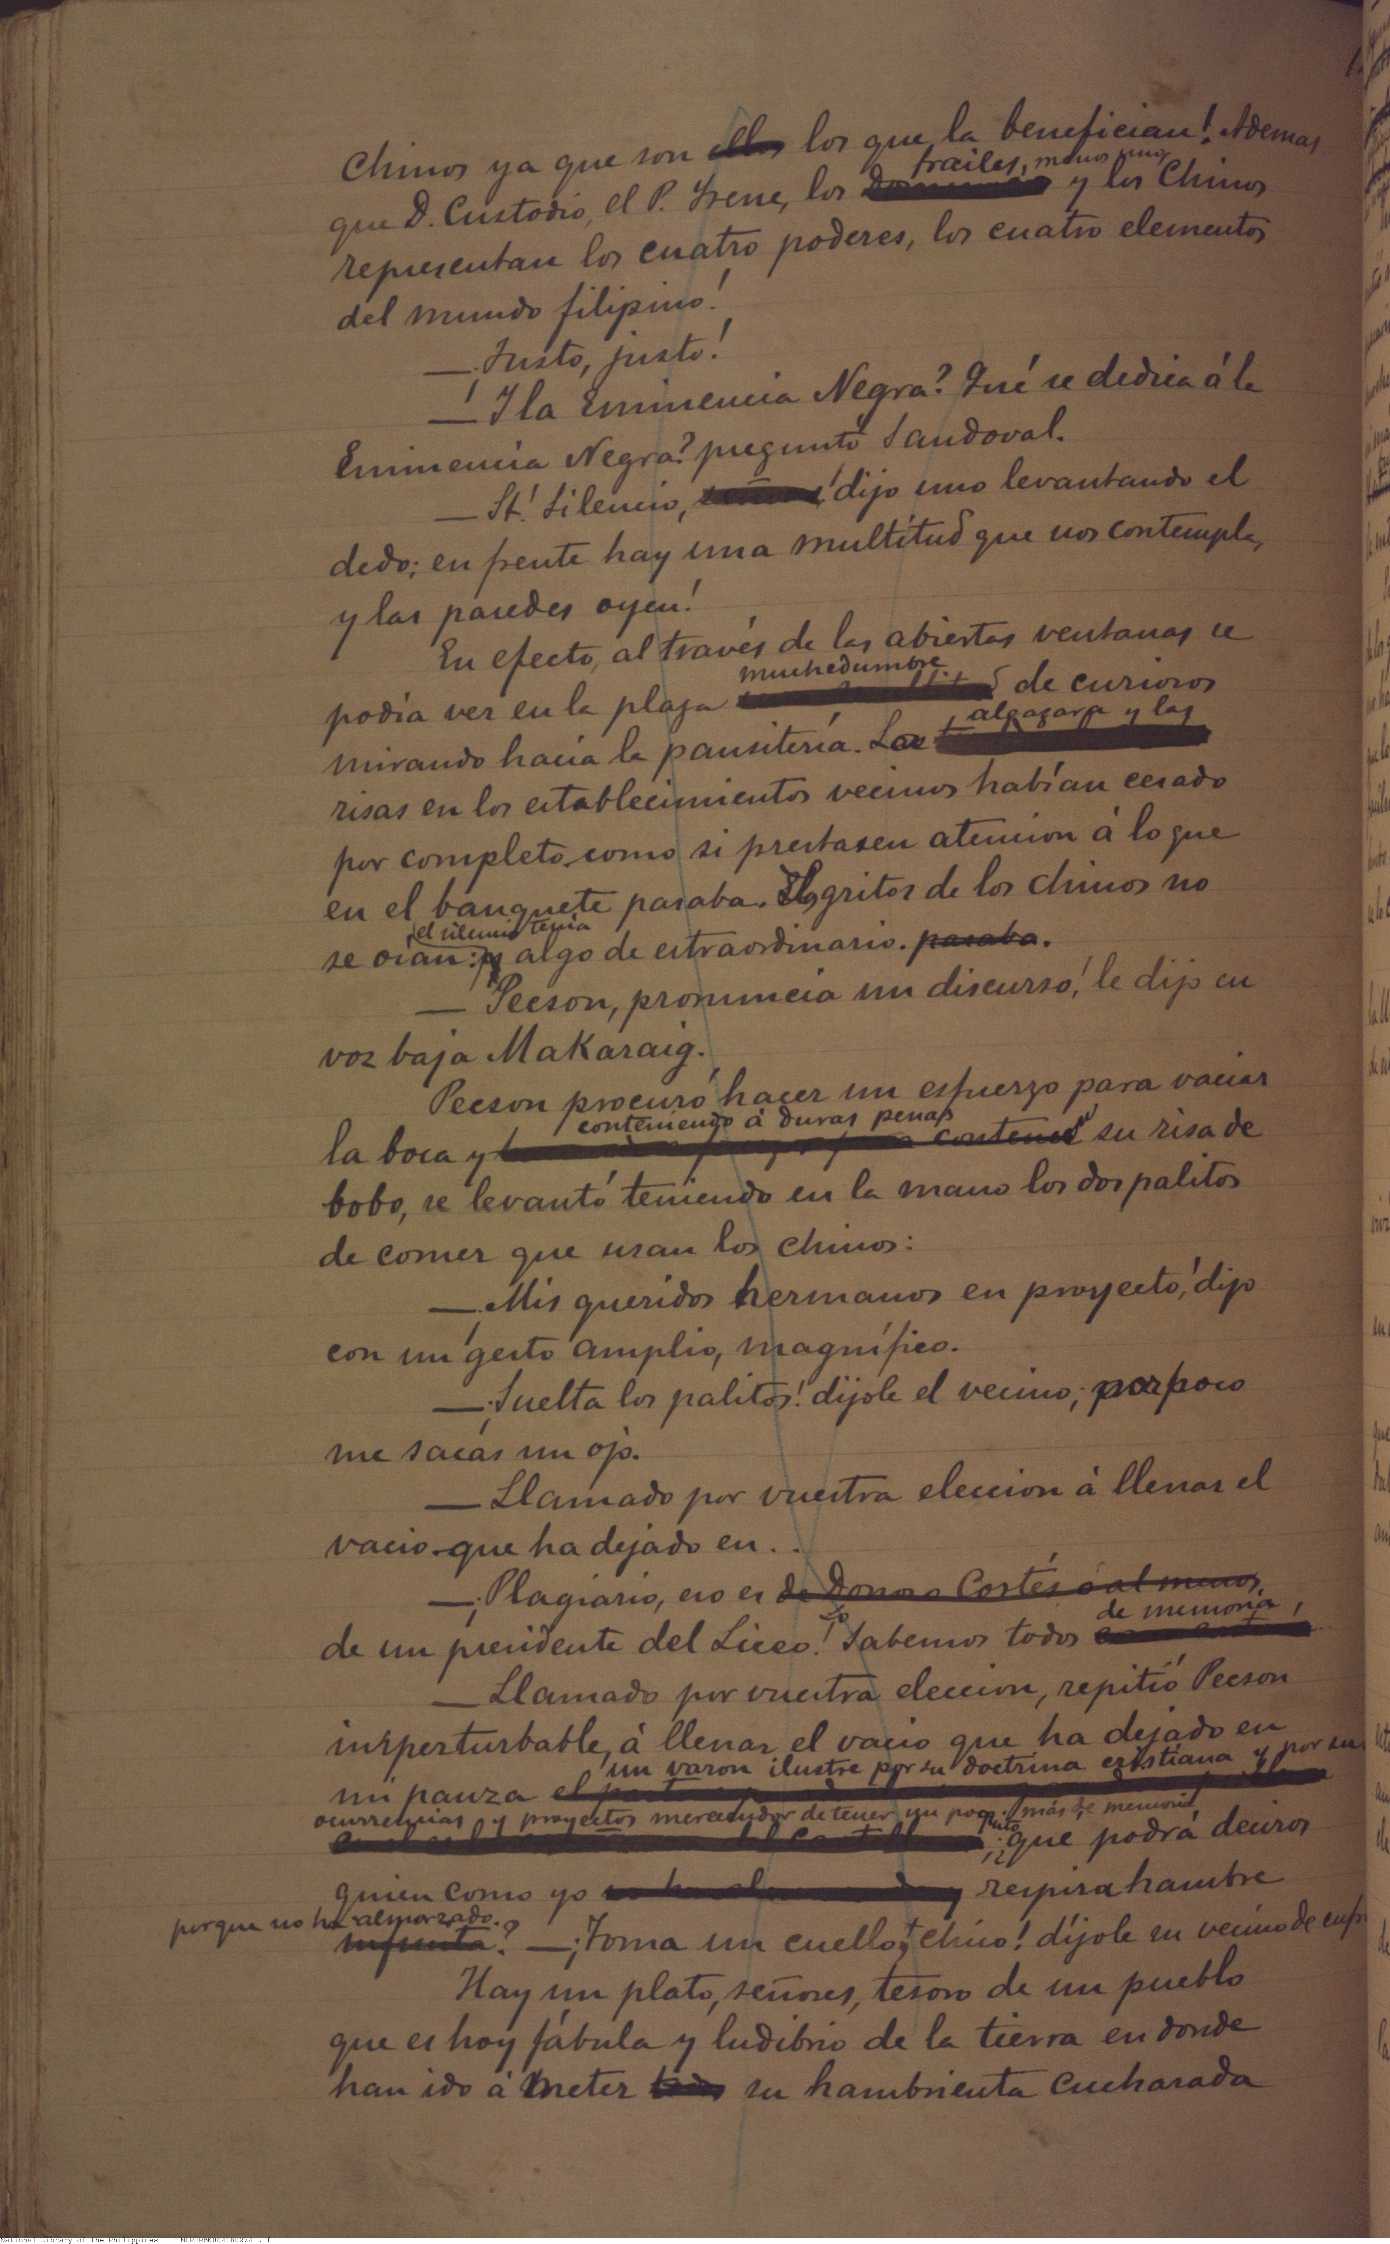 Chinos ya que son ellos los que la benefician! Ademas
frailes, menos uno,
que D. Custodio, el P. Irene, los y los Chinos
representan los cuatro poderes, los cuatro elementos
del mundo filipino!
—¡Justo, justo!
—¡Y la Eminencia Negra? Qué se dedica á la
Eminencia Negra? preguntó Sandoval.
—St! Silencio, señores! dijo uno levantando el
dedo; en frente hay una multitud que nos contempla,
y las paredes oyen!
En efecto, al través de las abiertas ventanas se
muchedumbre
podía ver en la plaza de curiosos
algazara y las
mirando hacia la pansitería. La
risas en los establecimientos vecinos habían cesado
por completo como si prestasen atencion á lo que
en el banquete pasaba. Los gritos de los chinos no
el silencio tenia
se oían: algo de estraordinario. pasaba.
—Pecson, pronuncia un discurso! le dijo en
voz baja Makaraig.
Pecson procuró hacer un esfuerzo para vaciar
conteniendo á duras penas
la boca y contener su risa de
bobo, se levantó teniendo en la mano los dos palitos
de comer que usan los chinos:
—¡Mis queridos hermanos en proyecto! dijo
con un gesto amplio, magnífico.
—¡Suelta los palitos! díjole el vecino; por poco
me sacas un ojo.
—Llamado por vuestra eleccion á llenar el
vacio que ha dejado en . .
—¡Plagiario, eso es de Donoso Cortés ó al menos
de memoria,
de un presidente del Liceo! Lo sabemos todos
—Llamado por vuestra eleccion, repitió Pecson
imperturbable, á llenar el vacio que ha dejado en
un varon ilustre por su doctrina cristiana y por sus
mi panza
ocurrencias y proyectos merecedor de tener un poquito más de memoria
¿que podrá deciros
quien como yo respira hambre
porque no ha almorzado.
? —¡Toma un cuello, chico! díjole su vecino de
Hay un plato, señores, tesoro de un pueblo
que es hoy fábula y ludibrio de la tierra en donde
han ido á meter todos su hambrienta cucharada